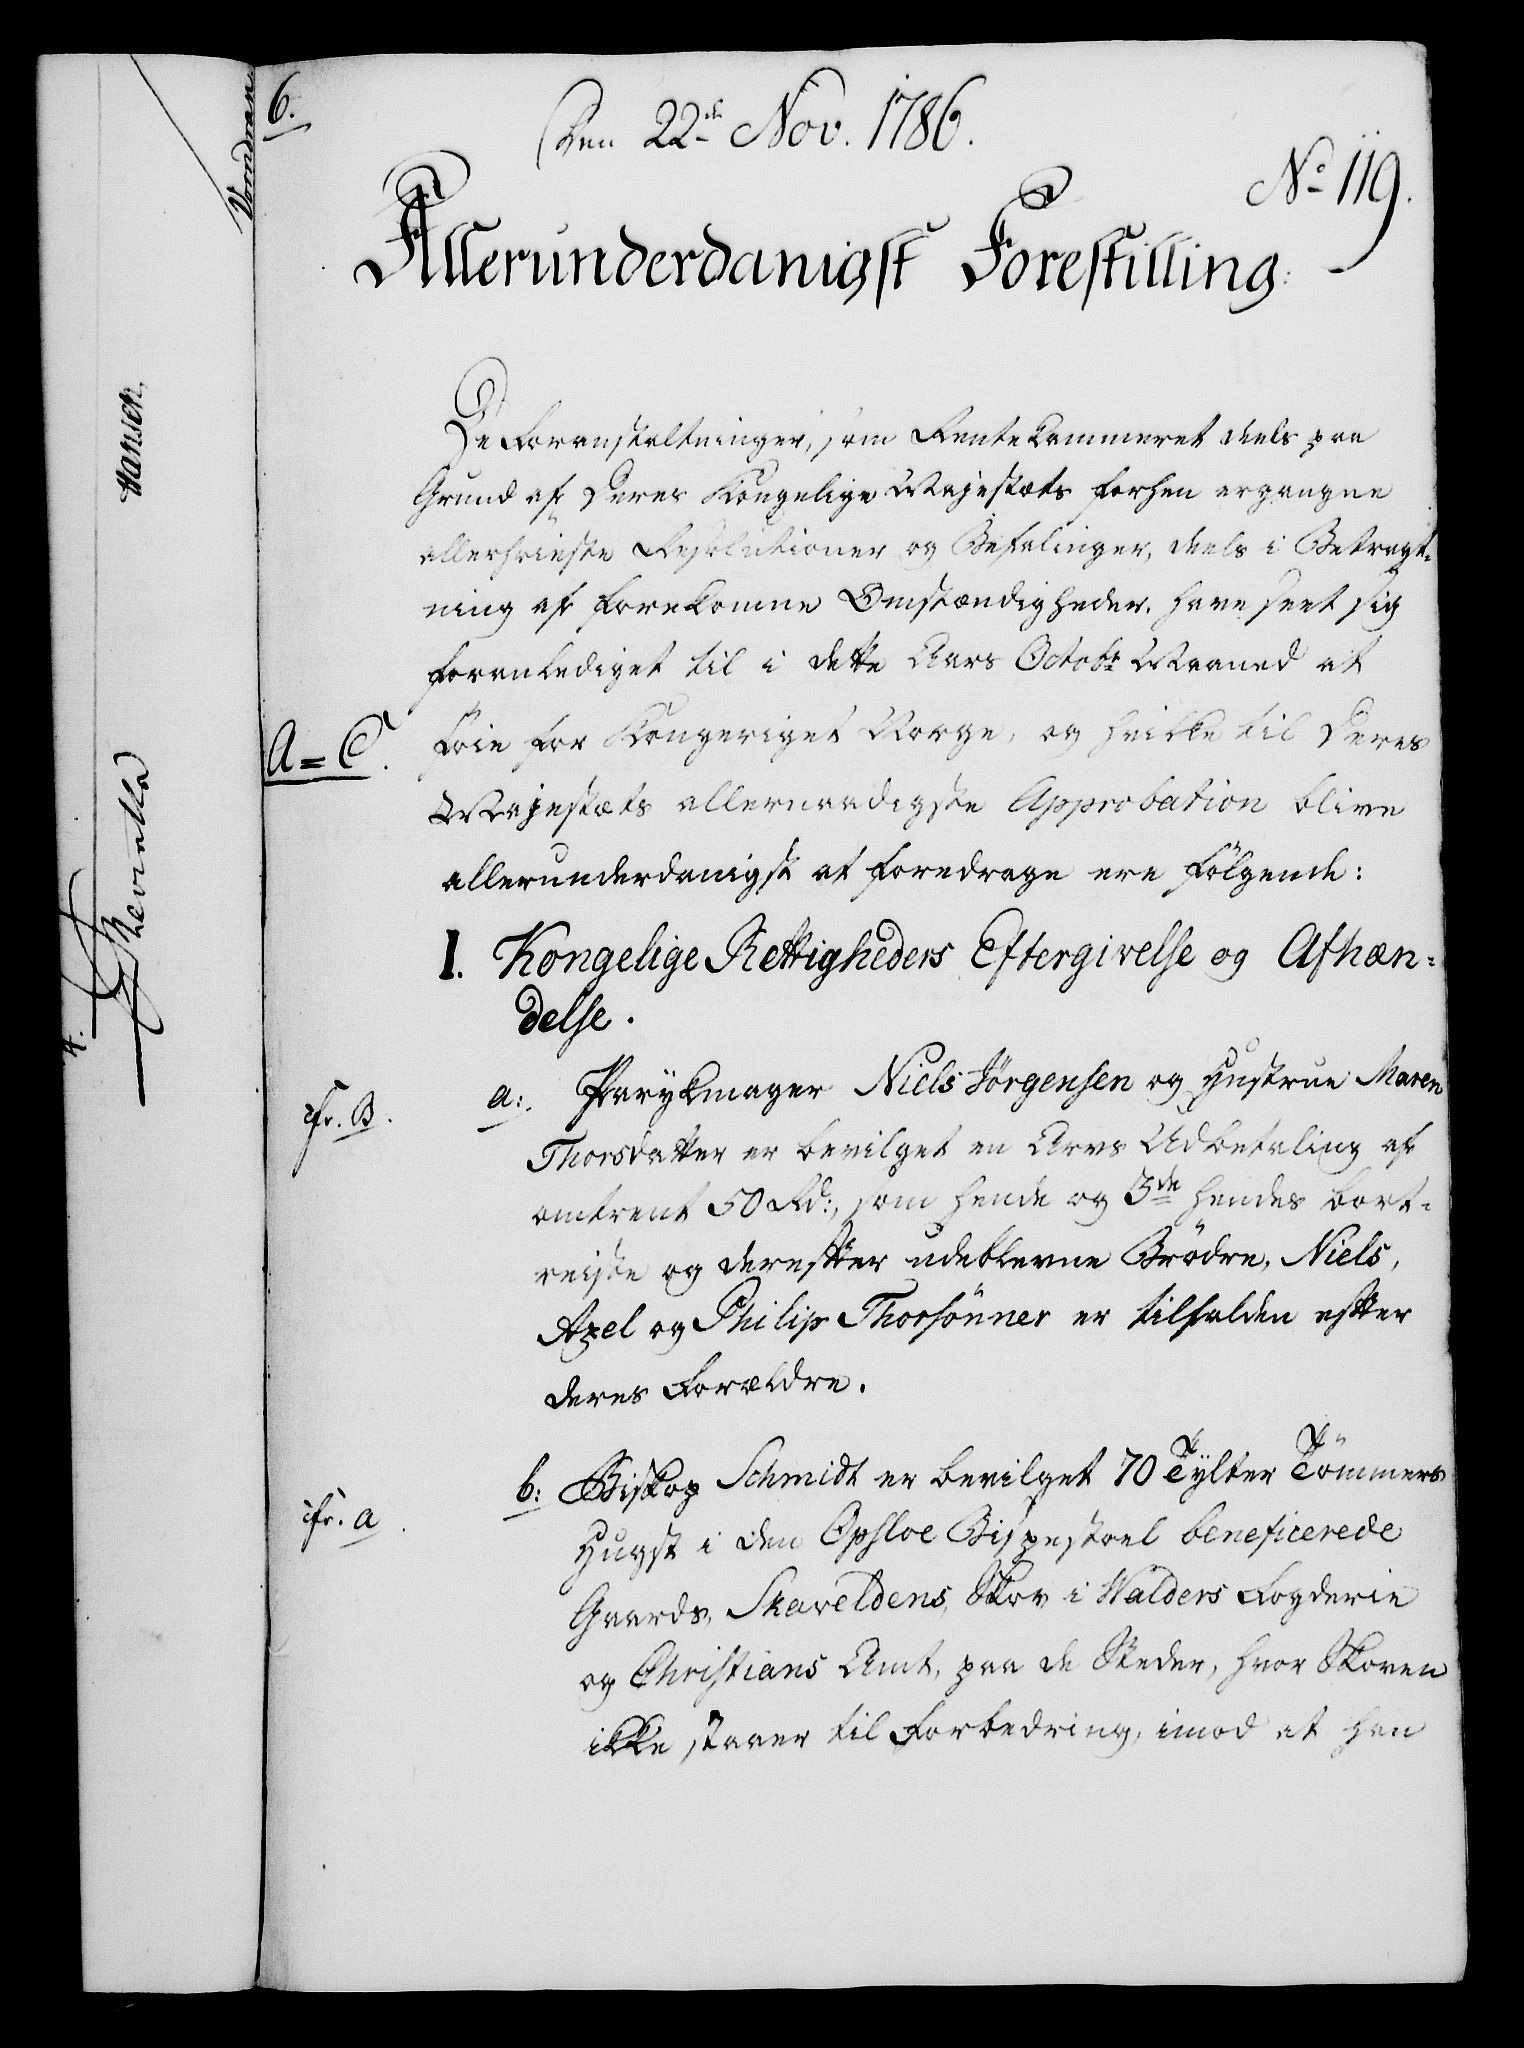 6.
Den 22de Nov. 1786.
No 119.
Allerunderdanigst Forestilling.
De Foranstaltninger, som Rentekammeret deels paa
Grund af Deres Kongelige Majestæts forhen ergangne
allerhöieste Resolutioner og Befalinger, deels i Betragt-
ning af forekomne Omstændigheder, have seet sig
foranlediget til i dette Aars Octobr Maaned at
föie for Kongeriget Norge, og hvilke til Deres
A = C.
Majestæts allernaadigste Approbation blive
allerunderdanigst at foredrage ere fölgende:
I. Kongelige Rettigheders Eftergivelse og Afhæn-
delse.
cfr. B.
a: Parykmager Niels Jörgensen og Hustrue Maren
Thorsdatter er bevilget en Arvs Udbetaling af
omtrent 50 Rd:, som hende og 3de hendes bort-
reiste og derefter udeblevne Brödre, Niels,
Axel og Philip Thorsönner er tilfalden efter
deres Forældre.
cfr. a.
b: Biskop Schmidt er bevilget 70 Tylter Tömmers
Hugst i den Opsloe Bispestoel beneficerede
Gaards, Skaveldens, Skov i Walders Fogderie
og Christians Amt, paa de Steder, hvor Skoven
ikke staaer til Forbedring, imod at han
Vondraen
Hansen.
4.